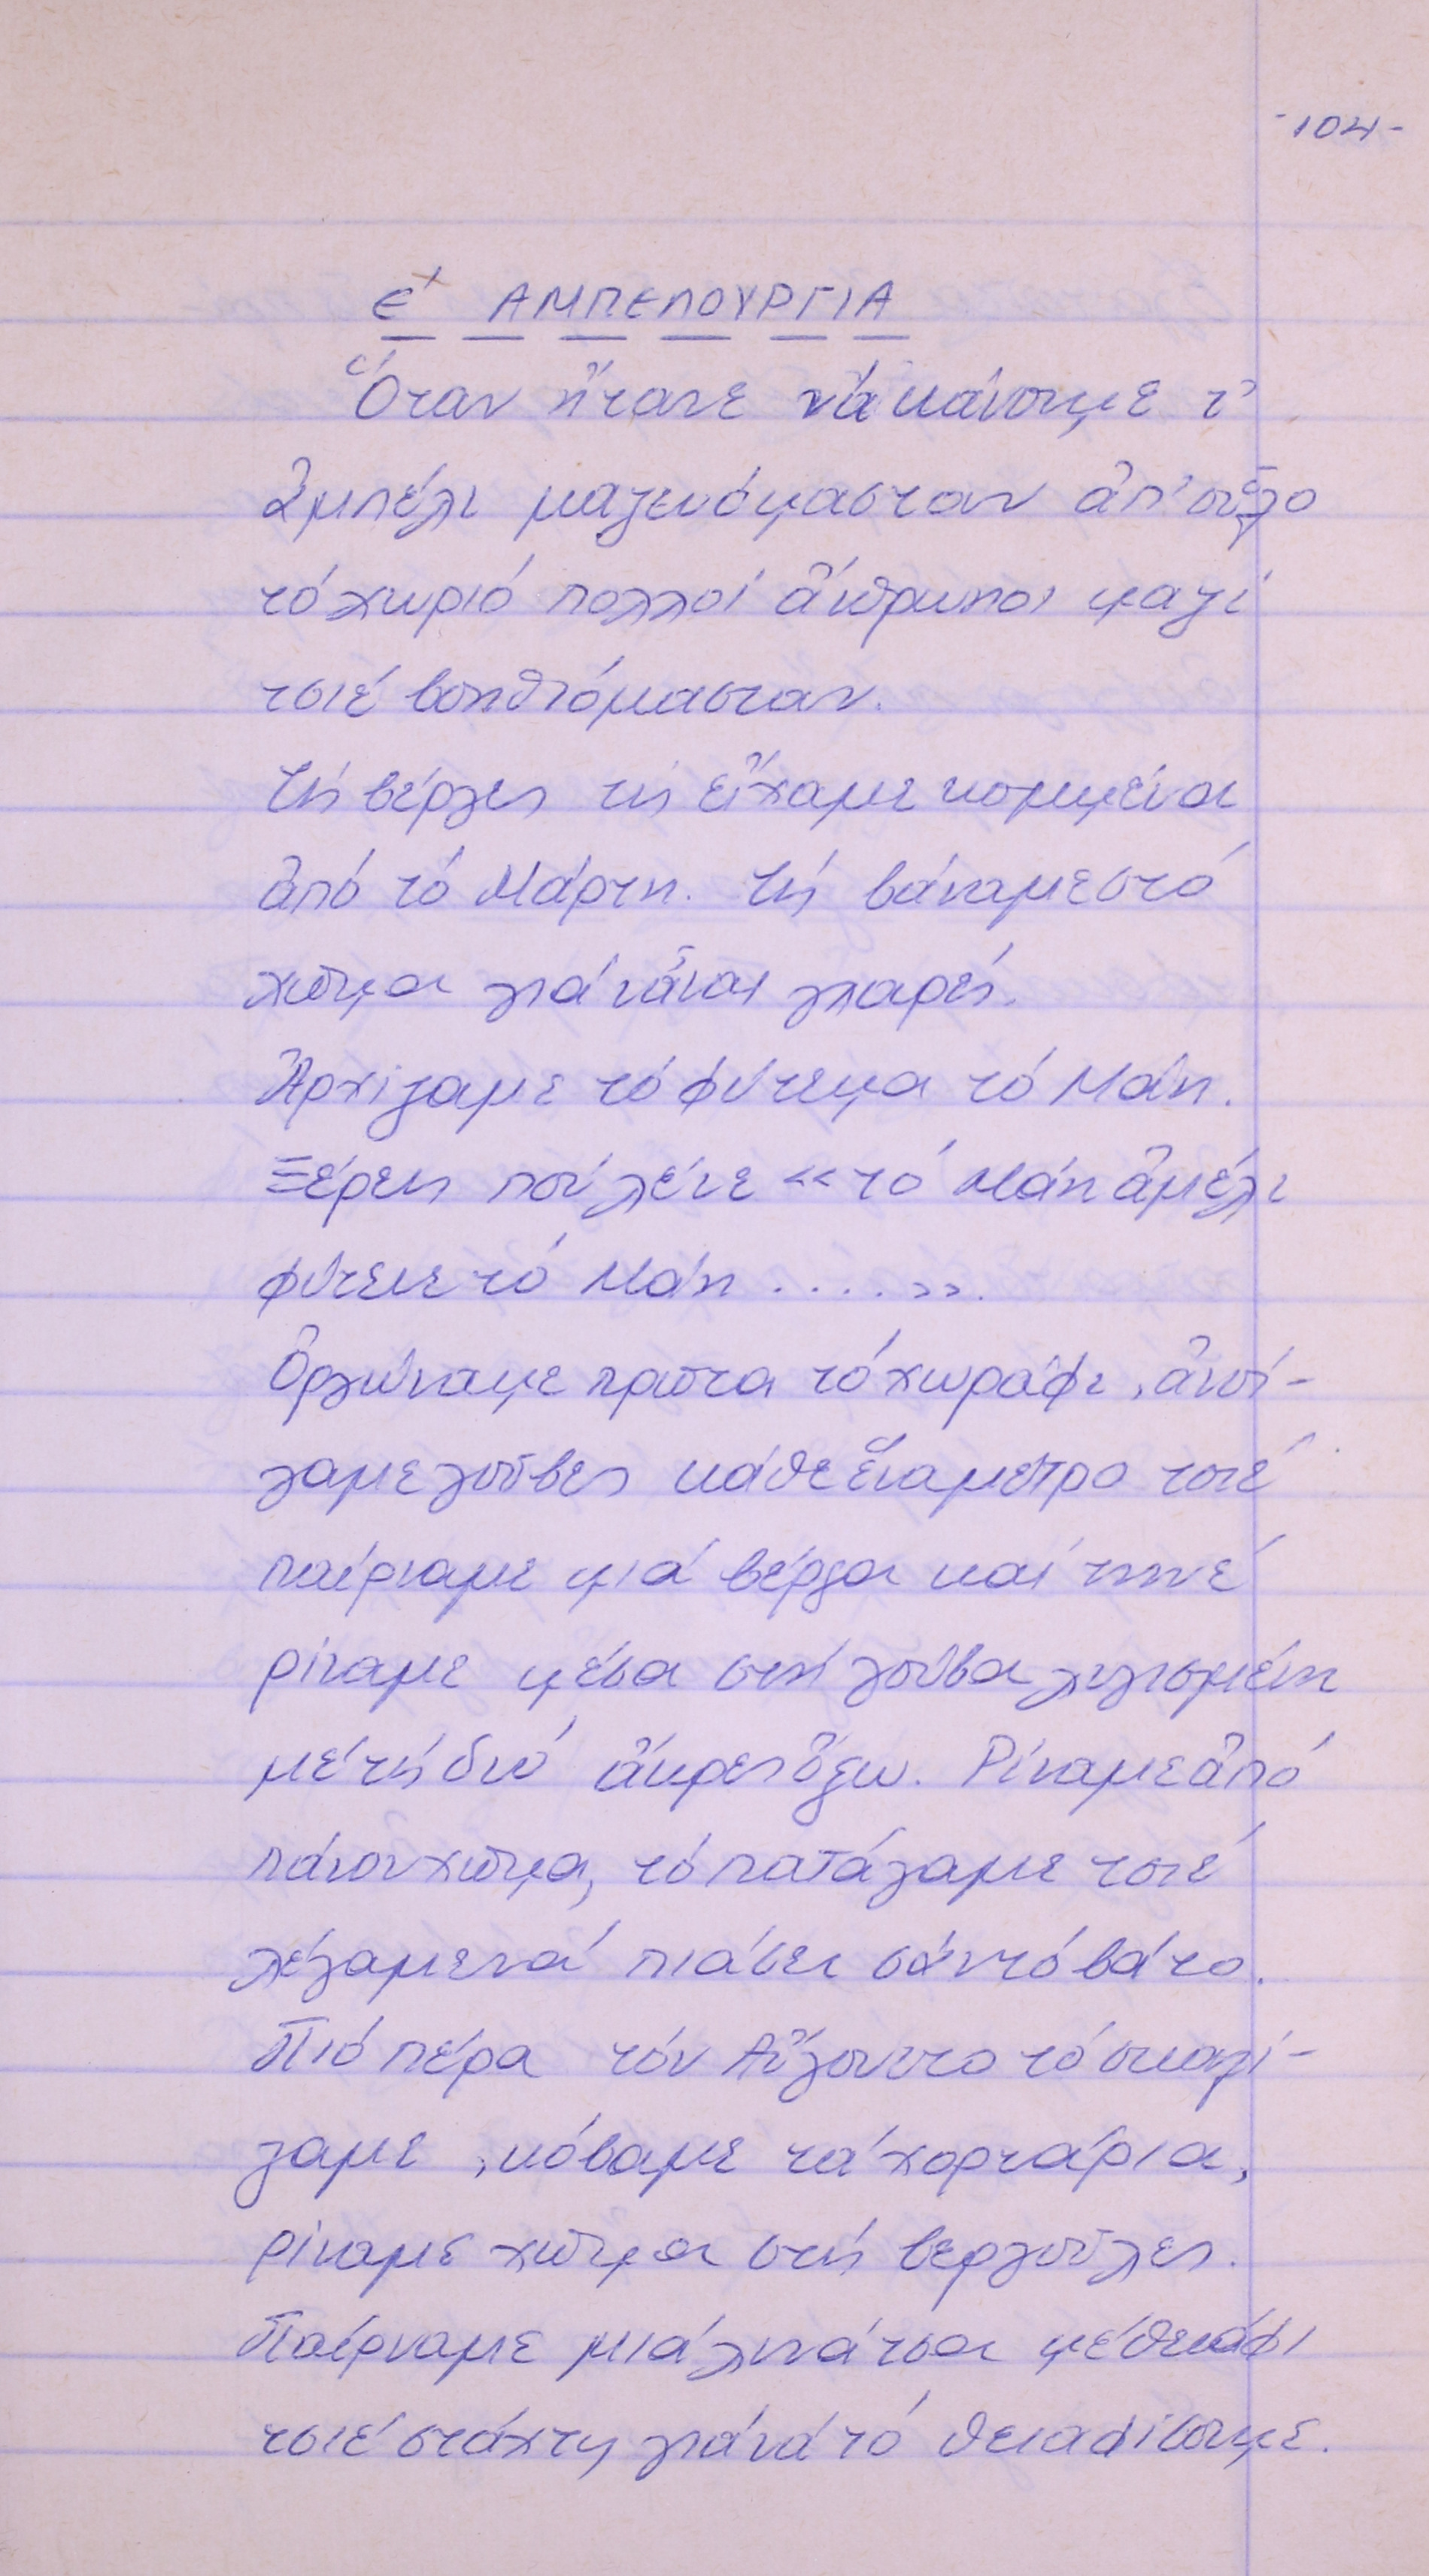 -104-
Ε' ΑΜΠΕΛΟΥΡΓΙΑ
Ὅταν ἤτανε νά κάνουμε τ'
ἀμπέλι μαζευόμασταν ἀπ' οὗλο
τό χωριό πολλοί ἄνθρωποι μαζί
τσιέ βοηθιόμασταν.
Τίς βέργες τίς εἴχαμε κομμένα
ἀπό τό Μάρτη. Τίς βάναμε στό
χῶμα γιά νἆναι γλαρές.
Ἀρχίζαμε τό φύτεμα τό Μάη.
Ξέρεις πού λένε «τό Μάη ἀμέλι
φύτευε τό Μάη .....».
Ὀργώναμε πρῶτα τό χωράφι, ἀνοί-
γαμε γοῦβες κάθε ἕνα μέτρο τσιέ
παίρναμε μιά βέργα καί τηνέ
ρίναμε μέσα στή γούβα λυγισμένη
μέ τίς δυό ἄκρες ὄξω. Ρίναμε ἀπό
πάνου χῶμα, τό πατάγαμε τσιέ
λέγαμε νά πιάσει σάν τό βάτο.
Πιό πέρα τόν Αὔγουστο τό σκαλί-
ζαμε, κόβαμε τά χορτάρια,
ρίναμε χῶμα στίς βεργοῦλες.
Παίρναμε μιά λινάτσα μέ θειάφι
τσιέ στάχτη γιά νά τό θειαφίσουμε.